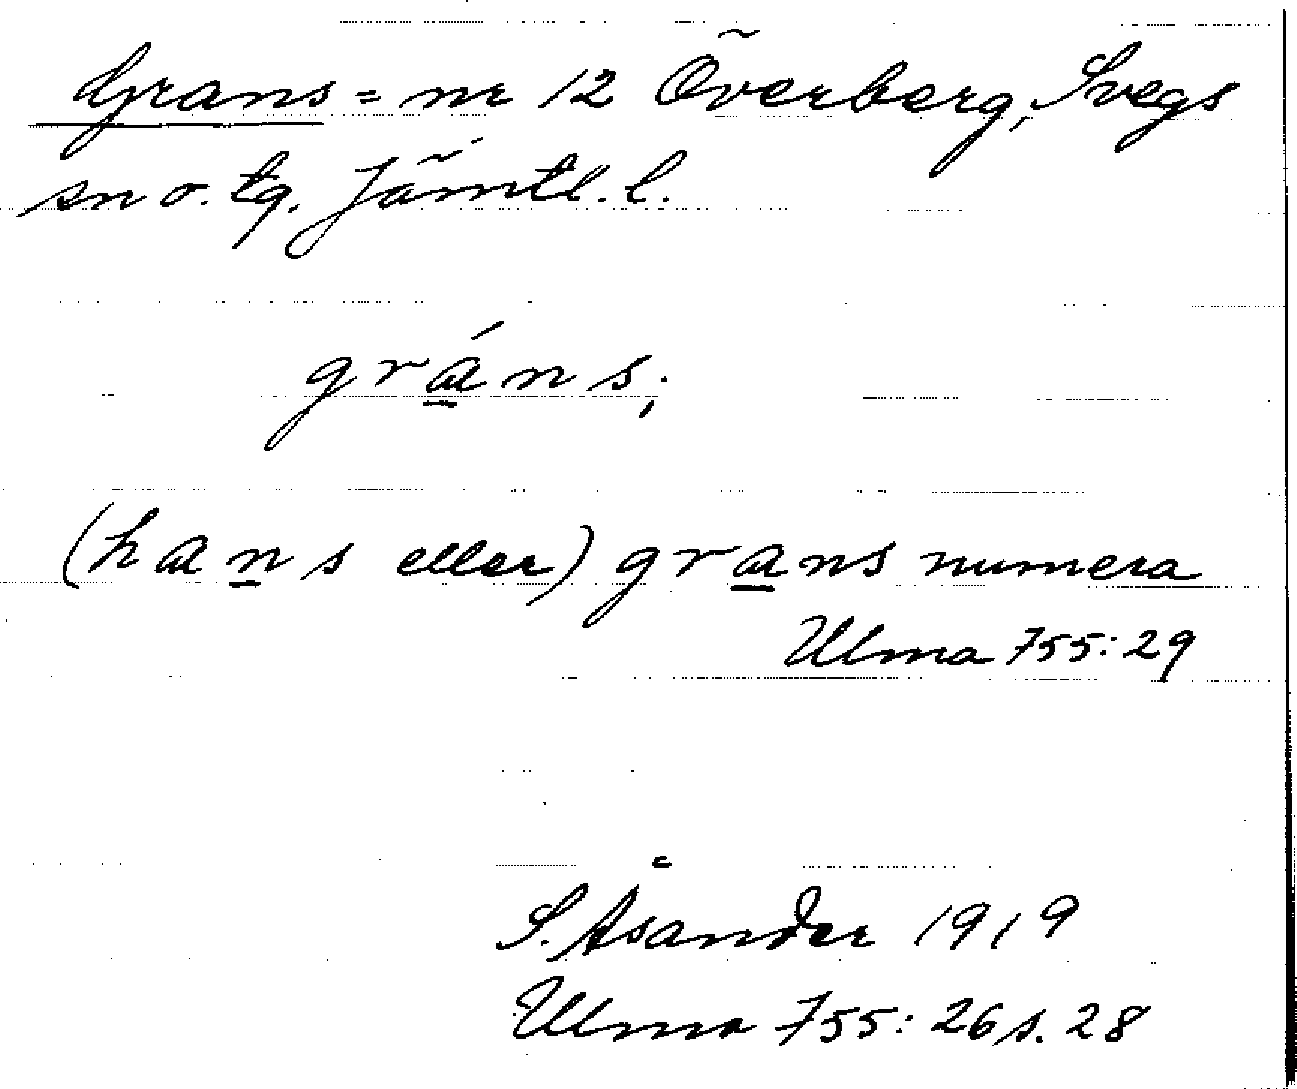 Grans = nr 12 Överberg, Svegs
sn o. tg. Jämtl. l.
gráns;
(hans eller) grans numera
Ulma 755:29
S. Åsander 1919
Ulma 755:26 s. 28